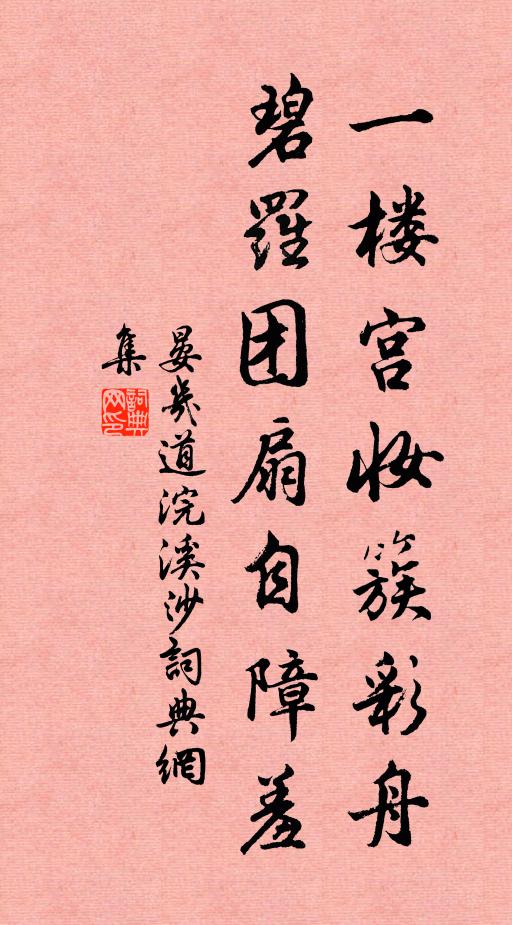 一楼宫妆簇彩舟
碧羅团扇自障羞
晏幾道浣溪沙詞典網
集
詞典
网印